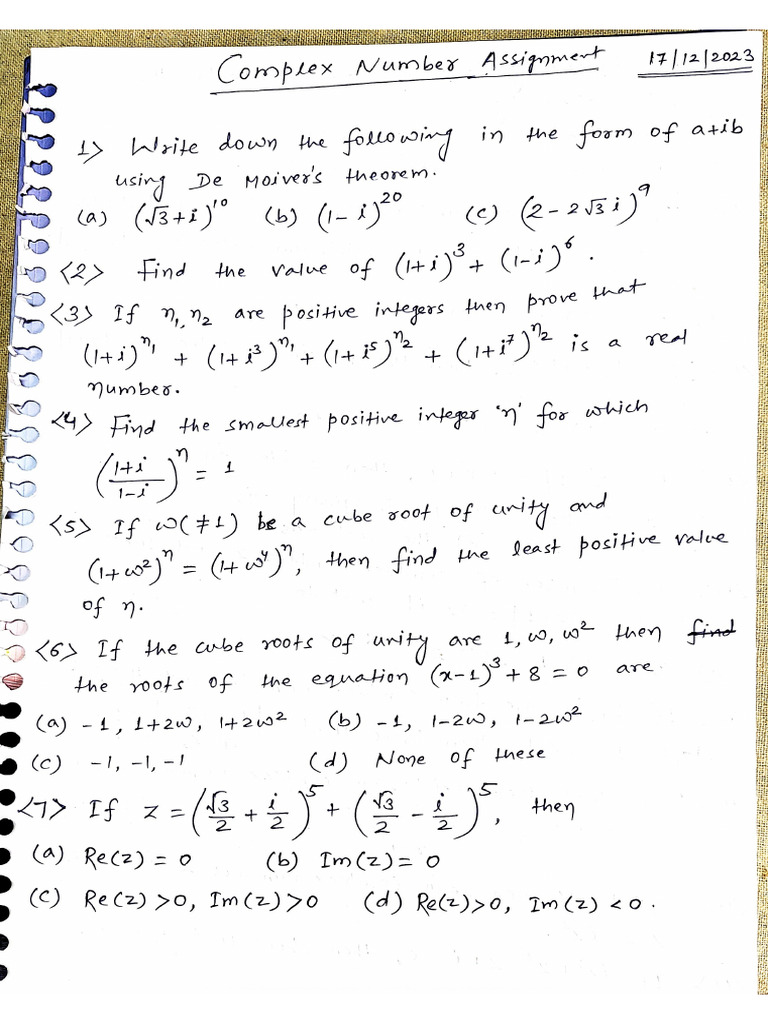 Complex Number Assignment 17/12/2023
1> Write down the following in the form of a+ib
using De Moiver's theorem.
(a) (√3+i)¹⁰ (b) (1-i)²⁰ (c) (2-2√3i)⁹
<2> Find the value of (1+i)³ + (1-i)⁶.
<3> If η₁, η₂ are positive integers then prove that
(1+i)^η₁ + (1+i³)^η₁ + (1+i⁵)^η₂ + (1+i⁷)^η₂ is a real
number.
<4> Find the smallest positive integer 'η' for which
((1+i)/(1-i))^η = 1
<5> If ω(≠1) be a cube root of unity and
(1+ω²)^η = (1+ω⁴)^η, then find the least positive value
of η.
<6> If the cube roots of unity are 1, ω, ω² then find
the roots of the equation (x-1)³ + 8 = 0 are.
(a) -1, 1+2ω, 1+2ω² (b) -1, 1-2ω, 1-2ω²
(c) -1, -1, -1 (d) None of these
<7> If z = (√3/2 + i/2)⁵ + (√3/2 - i/2)⁵, then
(a) Re(z) = 0 (b) Im(z) = 0
(c) Re(z) >0, Im(z) >0 (d) Re(z) >0, Im(z) <0.